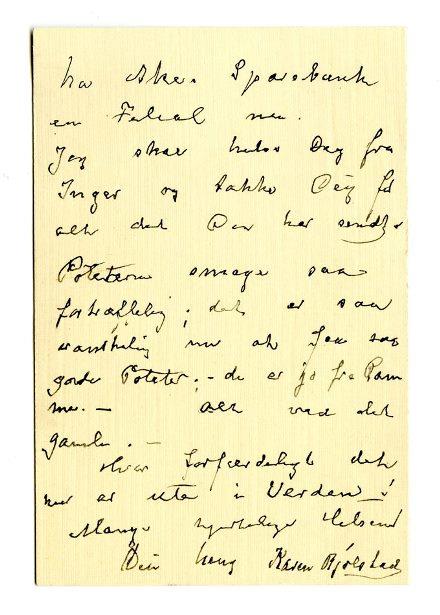 har Akers Sparebank
en Filial nu.
Jeg skal hilse Dig fra
Inger og takke Dig for
alt det Du har sendt.
Poteterne smager saa
fortræffelig; det er saa
vanskelig nu at faa saa
gode Poteter; - de er jo fra Ram
me. - Alt ved det
gamle. -
Hvor forfærdeligt det
her er ute i Verden!
Mange hjertelige Hilsener
Din heng Karen Bjølstad